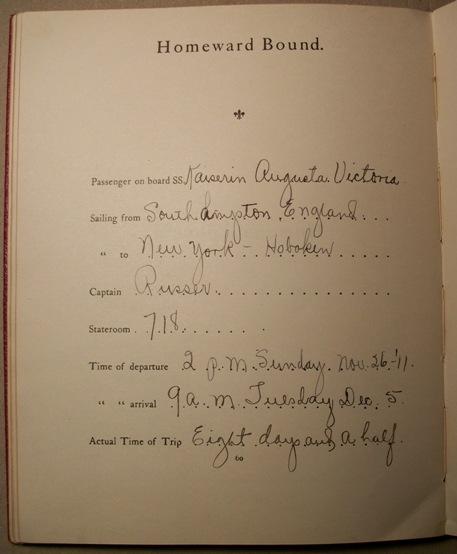 Homeward Bound.
Passenger on board SS. Kaiserin Augusta Victoria
Sailing from Southampton, England
" to New York - Hoboken
Captain Russer
Stateroom 718
Time of departure 2 p.m. Sunday. Nov. 26-'11.
" " arrival 9 a.m. Tuesday Dec. 5.
Actual Time of Trip Eight days and a half.